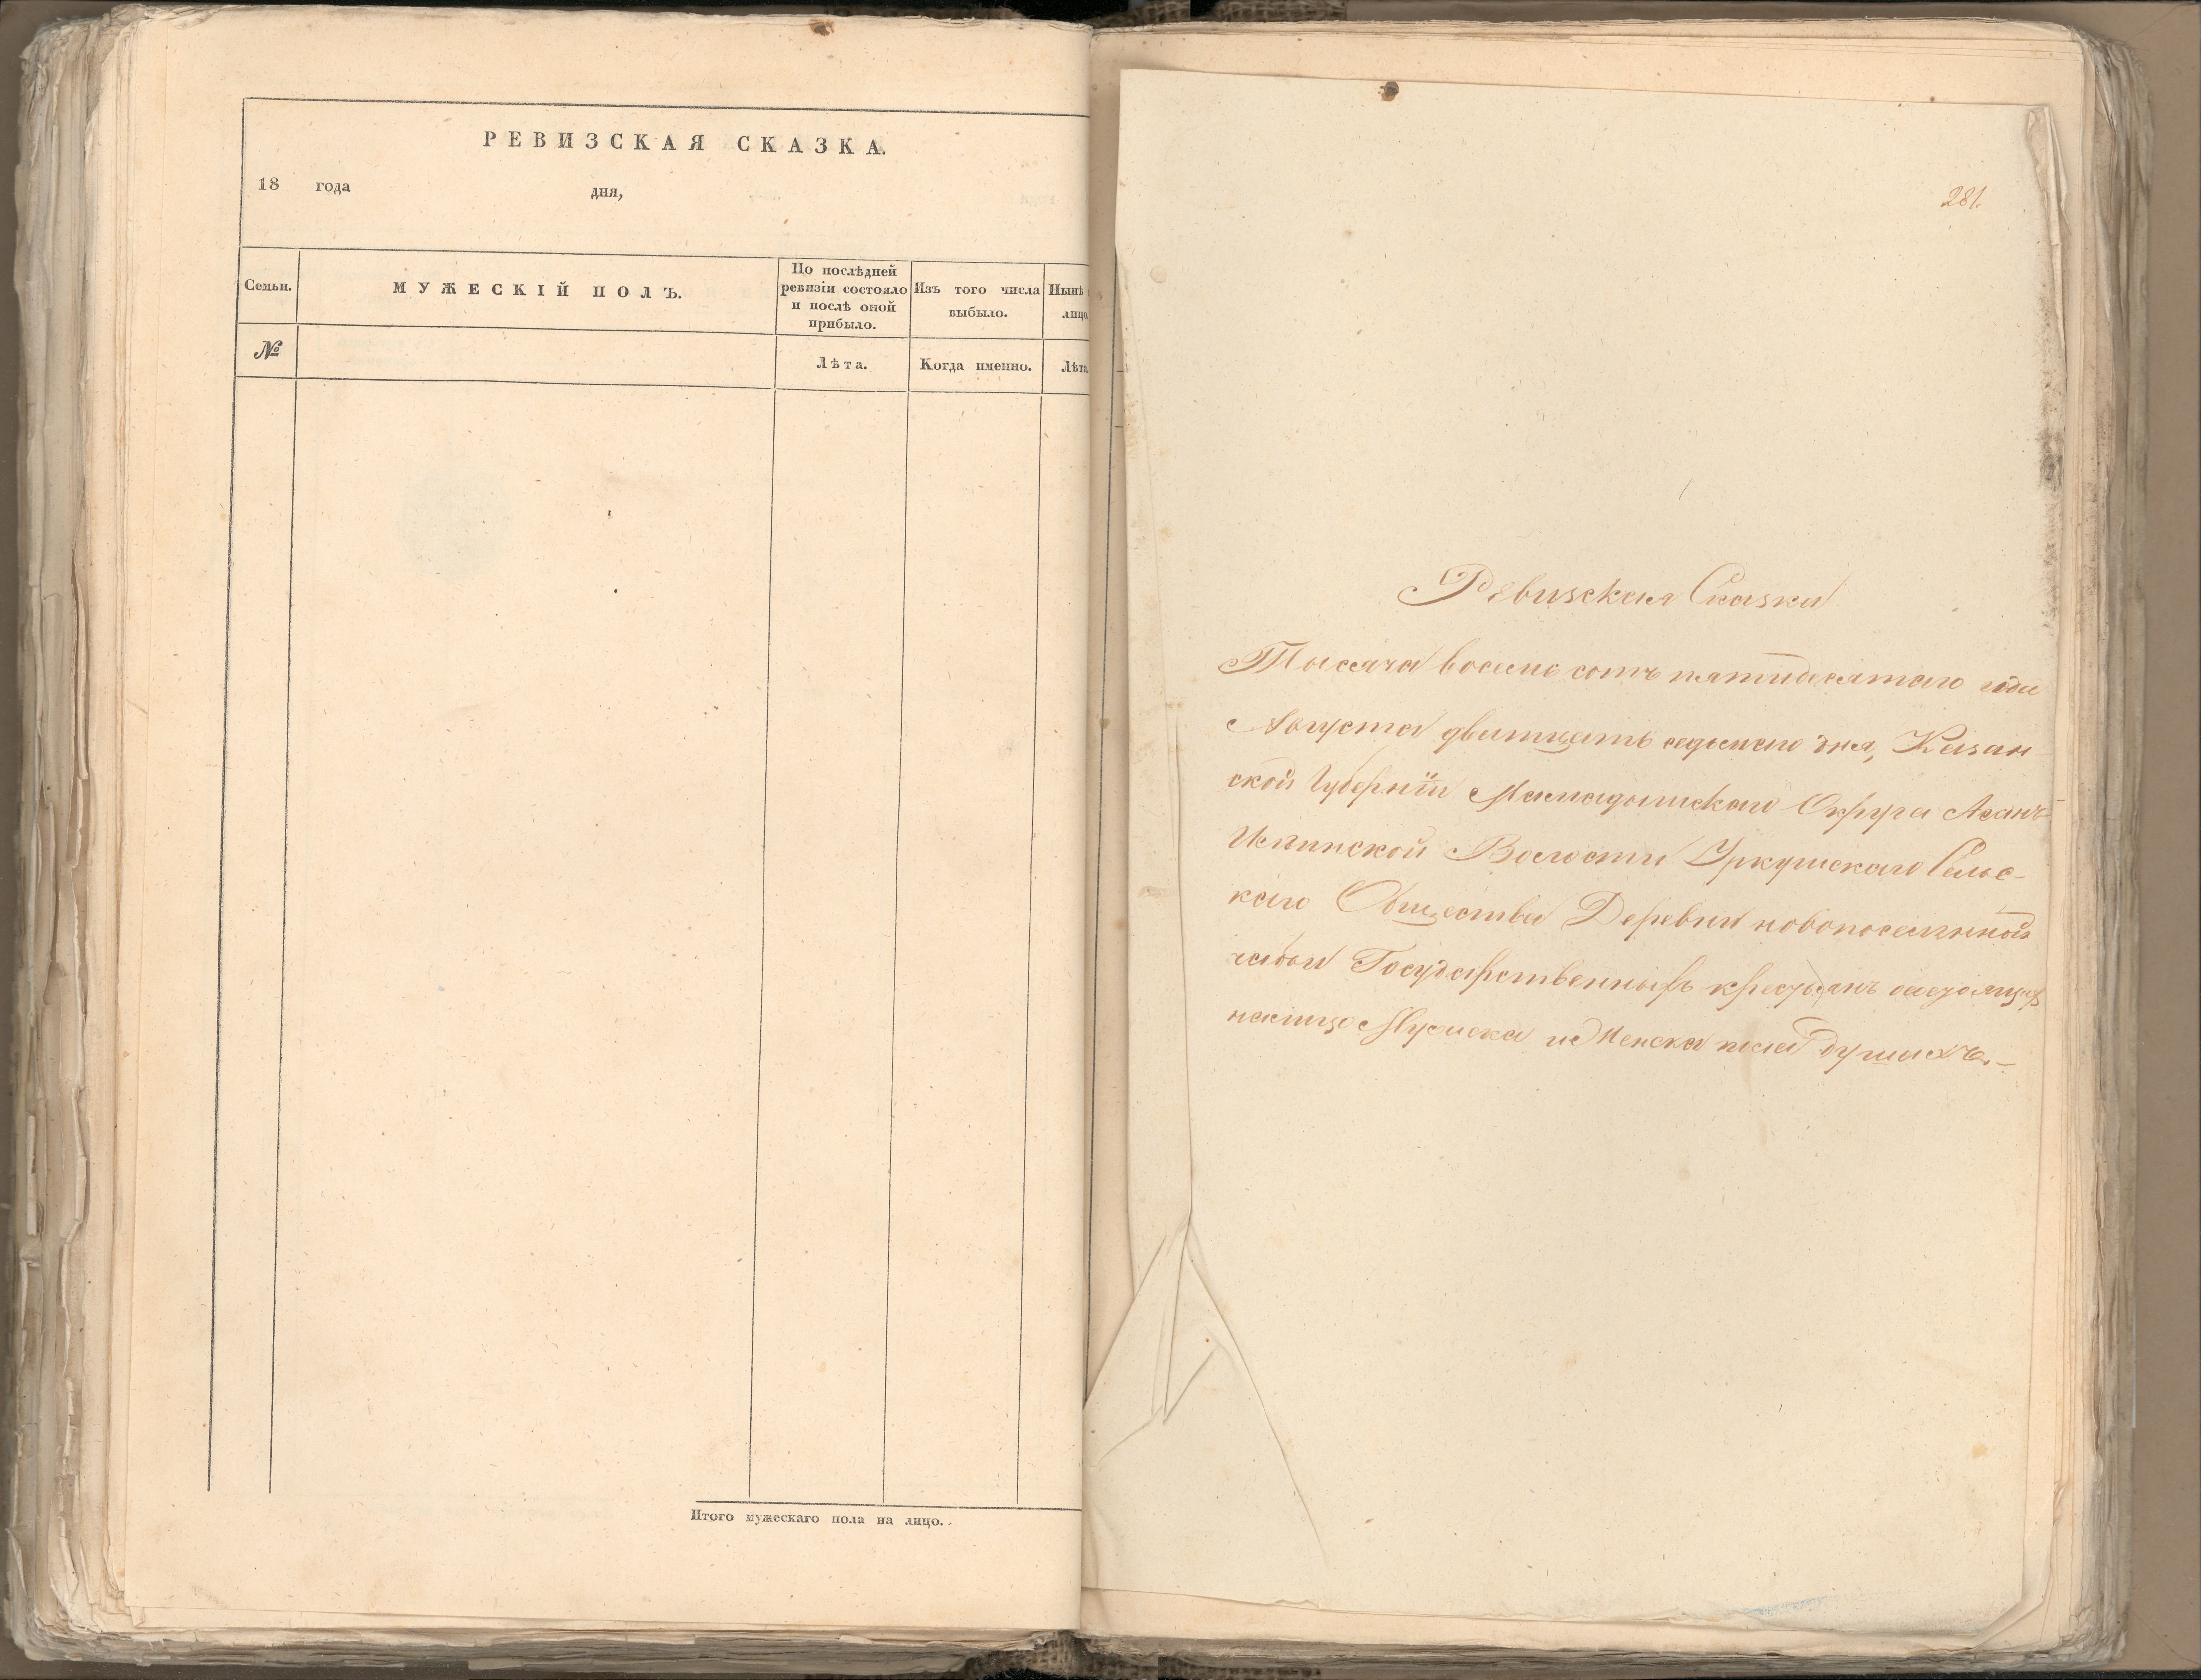 РЕВИЗСКАЯ СКАЗКА.
18 года дня,
Семьи.
МУЖЕСКІЙ ПОЛЪ.
По послѣдней
ревизіи состояло
и послѣ оной
прибыло.
Изъ того числа
выбыло.
Нынѣ
лицо
№
Лѣта.
Когда именно.
Лѣта
Итого мужескаго пола на лицо.
281.
Ревизская Сказка
Тысяча восемь сотъ пятидесятаго года
Августа дватцать седьмаго дня, Казан
ской Губерніи Мамадышскаго Округа Асанъ
Илгинской Волости Уркушскаго Сельс-
каго Общества Деревни новопоселенной
Государственныхъ крестьянъ состоящихъ
налицо Мужска и Женска пола душахъ.-